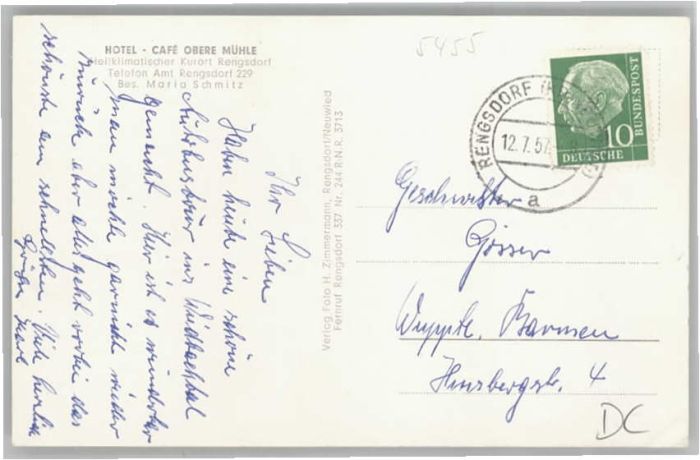 HOTEL - CAFÉ OBERE MÜHLE
Heilklimatischer Kurort Rengsdorf
Telefon Amt Rengsdorf 229
Bes. Maria Schmitz
5455
Ihr Lieben
Habe heute eine schöne
Autobustour ins Wiedbachtal
gemacht. Hier ist es wunderbar
man möchte garnicht wieder
zurück aber alles geht vorbei das
schönste am schnellsten. Viele herzliche
Grüße
Verlag Foto H. Zimmermann, Rengsdorf/Neuwied
Fernruf Rengsdorf 337 Nr. 244 R.N.R. 3713
RENGSDORF
12.7.57
a
10
DEUTSCHE
BUNDESPOST
Geschwister
Gösser
Wuppt. Barmen
Hinsbergstr. 4
DC